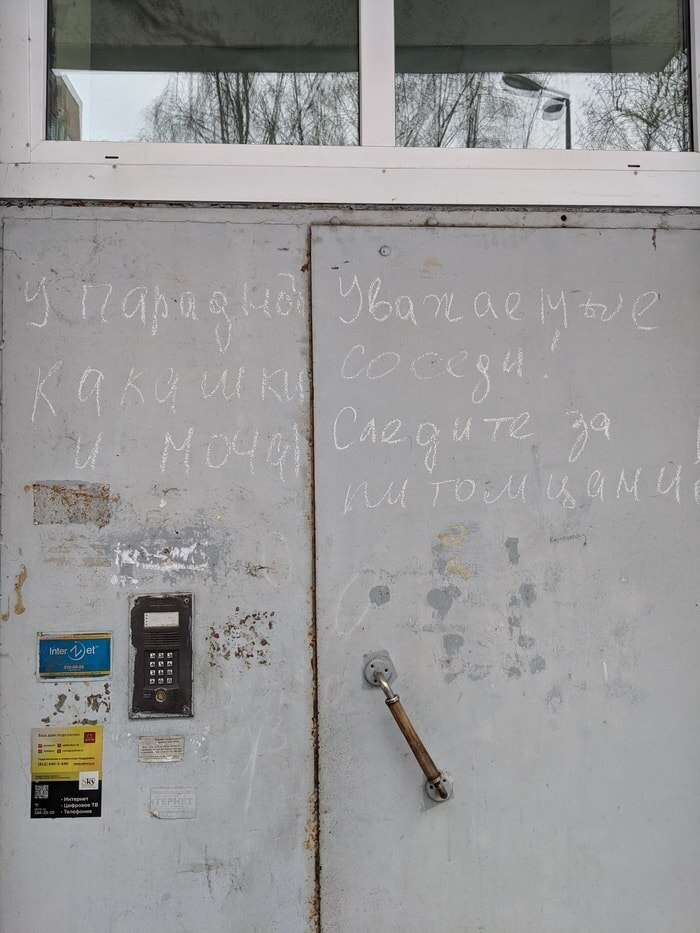 У парадной
какашки
и моча
Уважаемые
соседи!
Следите за
питомцами
InterZet
• Интернет
• Цифровое ТВ
• Телефония
sky
ТЕРНЕТ